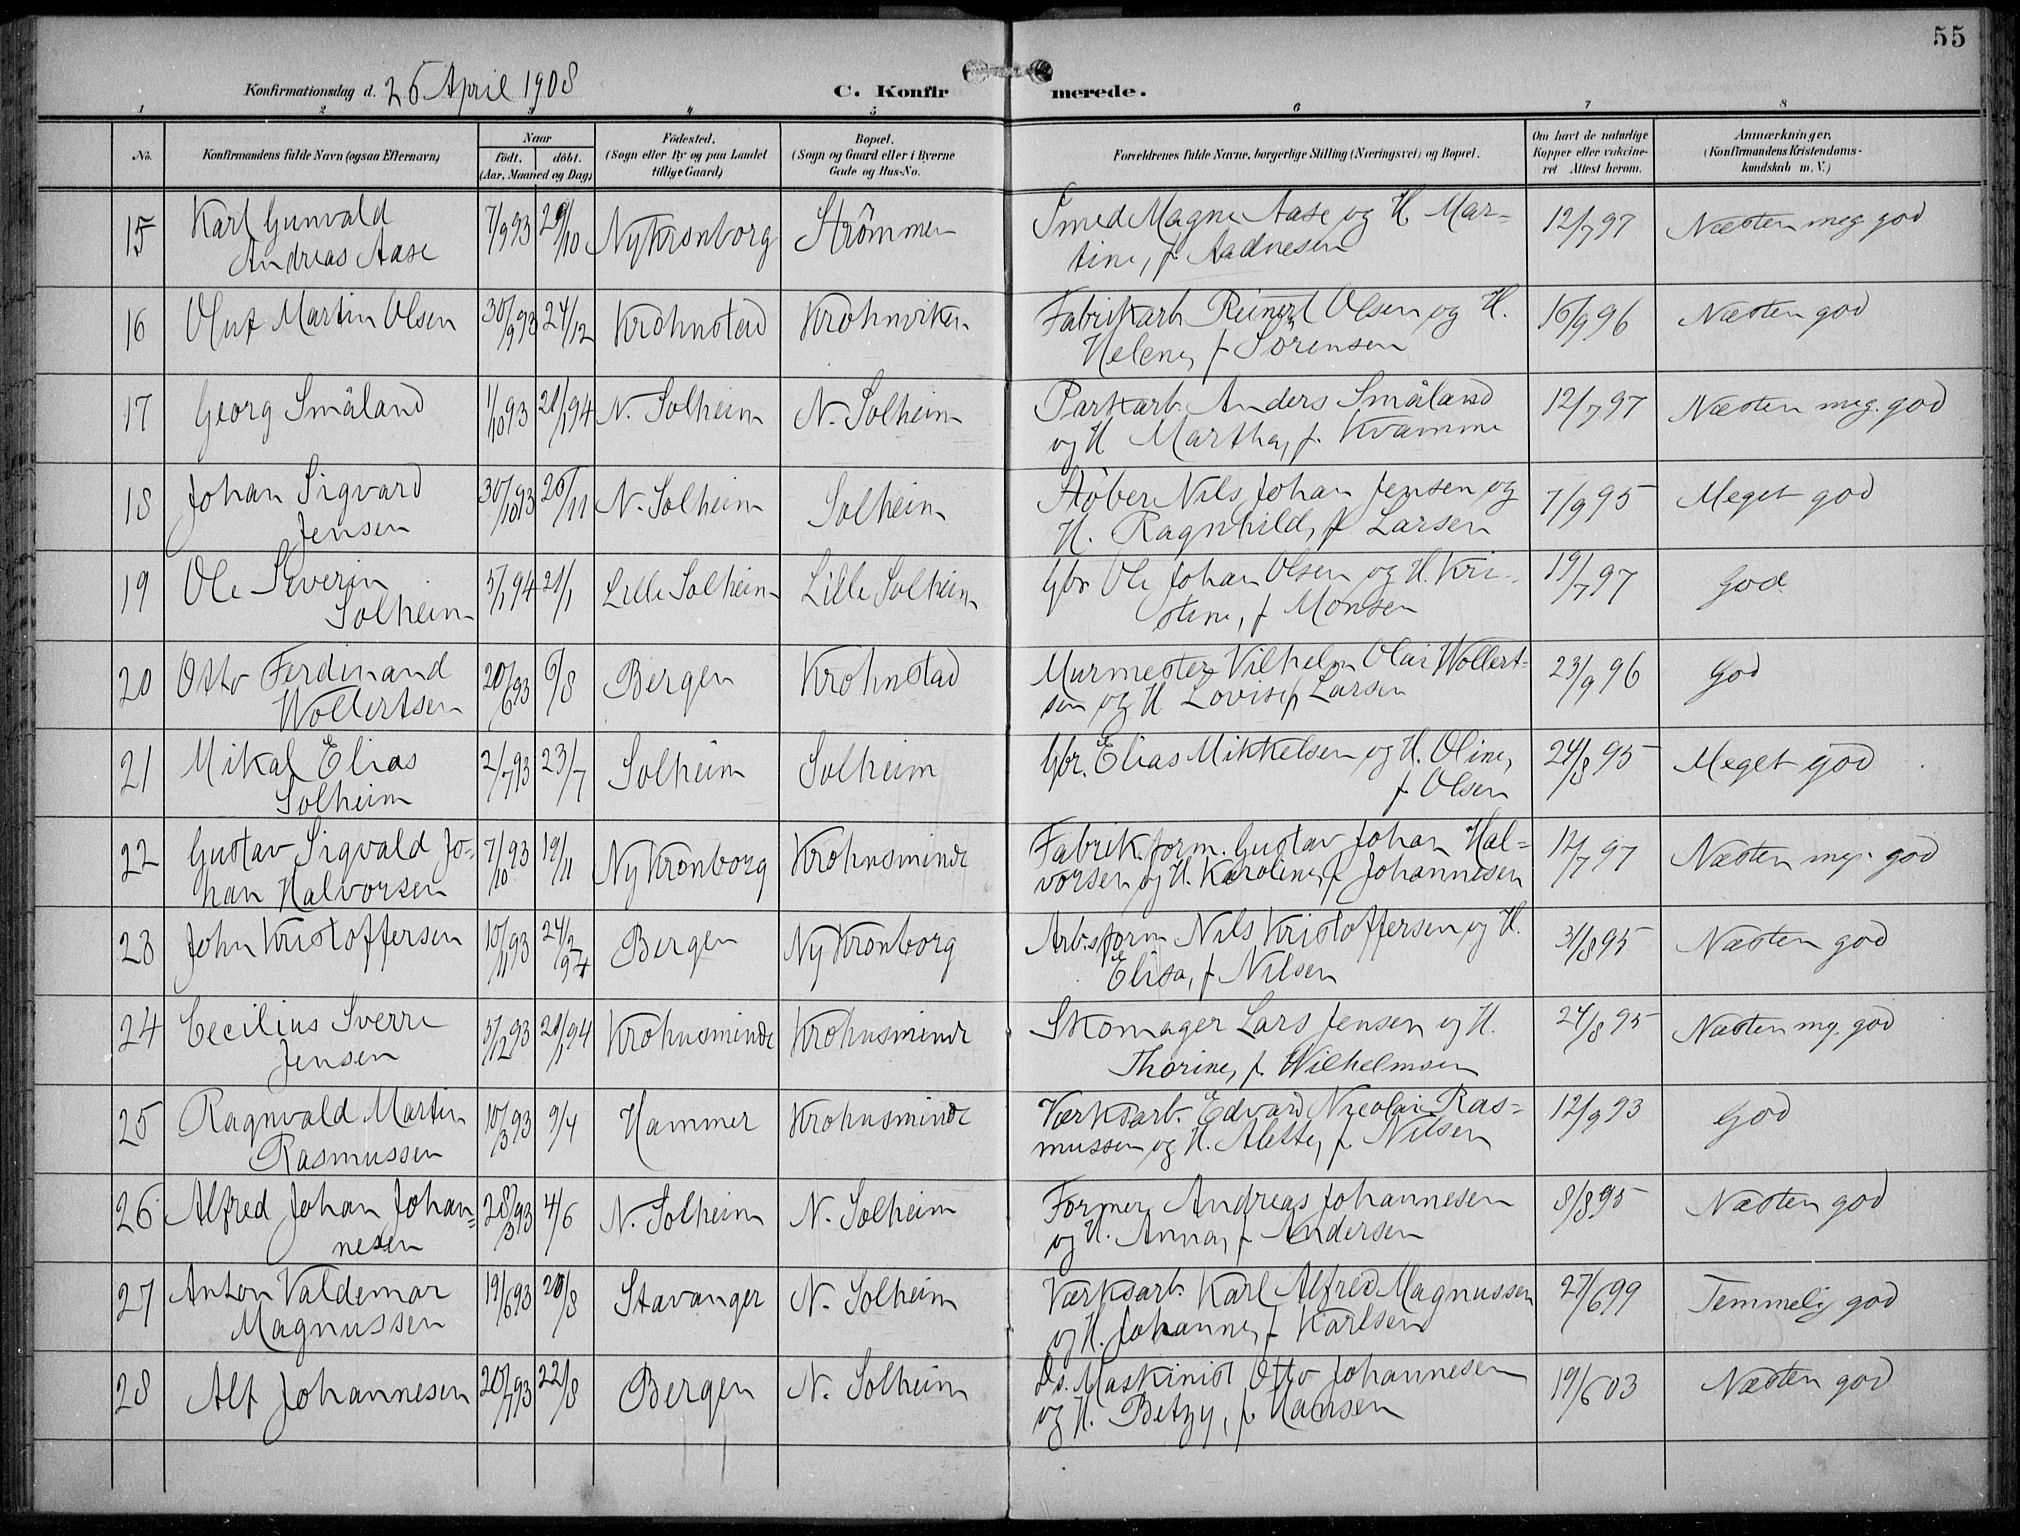 55
Konfirmationsdag d. 26 April 1908
C. Konfirmerede.
1 2 3 4 5 6 7 8
No.
Konfirmandens fulde Navn (ogsaa Efternavn)
Naar
födt. döbt.
(Aar, Maaned og Dag)
Födested.
(Sogn eller By og paa Landet
tillige Gaard)
Bopæl.
(Sogn og Gaard eller i Byerne
Gade og Hus-No.
Forældrenes fulde Navne, borgerlige Stilling (Næringsvei) og Bopæl.
Om havt de naturlige
Kopper eller vakcine-
ret Attest herom.
Anmærkninger.
(Konfirmandens Kristendoms-
kundskab m. V.)
15 Karl Gunvald 7/9 93 29/10 Ny Kronborg Strömmen Smed Magne Aase og H. Mar= 12/7 97 Næsten meg god
Andreas Aase tine, f. Aadnesen
16 Oluf Martin Olsen 30/9 93 24/12 Krohnstad Krohnviken Fabrikarb. Reinert Olsen og H. 16/9 96 Næsten god
Helene, f Sörensen
17 Georg Småland 1/10 93 21/1 94 N. Solheim N. Solheim Parkarb. Anders Småland 12/7 97 Næsten meg. god
og H Martha, f. Kvamme
18 Johan Sigvard 30/10 93 26/11 N. Solheim Solheim Stöber Nils Johan Jensen og 7/9 95 Meget god
Jensen H. Ragnhild, f Larsen
19 Ole Severin 5/1 94 21/1 Lille Solheim Lille Solheim Gbr Ole Johan Olsen og H. Kri- 19/7 97 God
Solheim stine, f Monsen
20 Otto Ferdinand 20/6 93 6/8 Bergen Krohnstad Murmester Vilhelm Olai Wollert- 23/9 96 God
Wollertsen sen og H. Lovise f Larsen
21 Mikal Elias 2/7 93 23/7 Solheim Solheim Gbr. Elias Mikkelsen og H. Oline, 24/8 95 Meget god
Solheim f Olsen
22 Gustav Sigvald Jo- 7/10 93 19/11 Ny Kronborg Krohnsminde Fabrik.form. Gustav Johan Hal= 12/7 97 Næsten meg. god
han Halvorsen vorsen og H. Karoline, f Johannesen
23 John Kristoffersen 10/11 93 24/2 94 Bergen Ny Kronborg Arb.sform Nils Kristoffersen og H. 31/8 95 Næsten god
Elisa, f Nilsen
24 Cecilius Sverre 5/12 93 21/1 94 Krohnsminde Krohnsminde Skomager Lars Jensen og H. 24/8 95 Næsten mg. god
Jensen Thorine, f. Wilhelmsen
25 Ragnvald Martin 10/3 93 9/4 Hammer Krohnsminde Værksarb. Edvard Nicolai Ras= 12/9 93 God
Rasmussen mussen og H. Alette, f Nilsen
26 Alfred Johan Johan- 28/3 93 4/6 N. Solheim N. Solheim Former Andreas Johannesen 8/8 95 Næsten god
nesen og H. Anna, f Andersen
27 Anton Valdemar 19/6 93 20/8 Stavanger N. Solheim Værksarb. Karl Alfred Magnussen 27/6 99 Temmelig god
Magnussen og H. Johanne, f Karlsen
28 Alf Johannesen 20/7 93 22/8 Bergen N. Solheim Ds. Maskinist Otto Johannesen 19/6 03 Næsten god
og H. Betzy, f Hansen